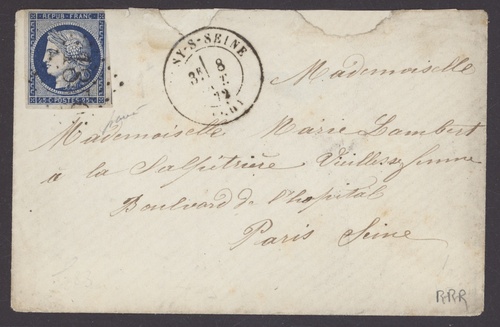 REPUB. FRANC.
25 C. POSTES 25 C.
SY-S-SEINE
3E 8
72
Mademoiselle
Mademoiselle Marie Lambert
a la Salpétrière Vieillesse femme
Boulevard de l'hopital
Paris Seine
RRR